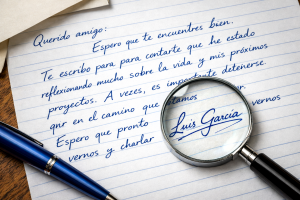 Querido amigo:
Espero que te encuentres bien.
Te escribo para para contarte que he estado
reflexionando mucho sobre la vida y mis próximos
proyectos. A veces, es importante detenerse
qnr en el camino que
Espero que pronto vernos
vernos y charlar
Luis García